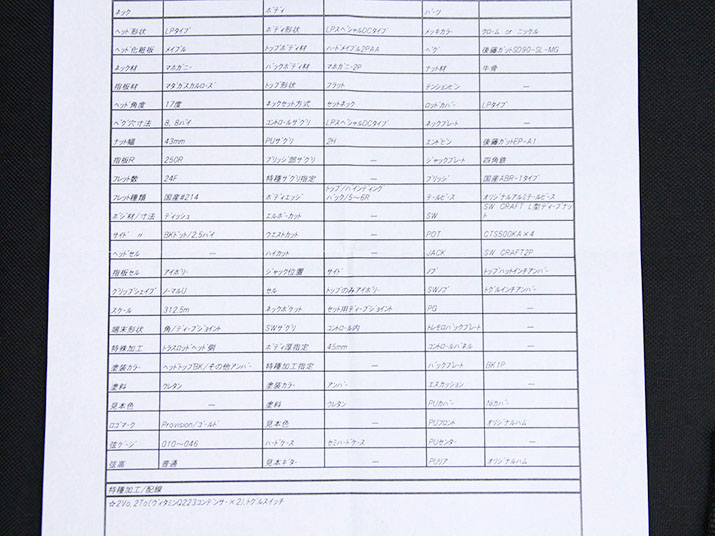 ネック ボディ パーツ
ヘッド形状 LPタイプ ボディ形状 LPスペシャルDCタイプ メッキカラー クローム or ニッケル
ヘッド化粧板 メイプル トップボディ材 ハードメイプル2PAA ペグ 後藤ガットSD90-SL-MG
ネック材 マホガニー バックボディ材 マホガニー2P ナット材 牛骨
指板材 マダガスカルローズ トップ形状 フラット テンションピン ―
ヘッド角度 17度 ネックセット方式 セットネック ロッドカバー LPタイプ
ペグ穴寸法 8.8バイ コントロールザグリ LPスペシャルDCタイプ ネックプレート ―
ナット幅 43mm PUザグリ 2H エンドピン 後藤ガットEP-A1
指板R 250R ブリッジ部ザグリ ― ジャックプレート 四角鉄
フレット数 24F 特種ザグリ指定 ― ブリッジ 国産ABR-1タイプ
フレット種類 国産#214 ボディエッジ トップ/バインディング バック/5～6R テールピース オリジナルアルミテールピース
ポジ材/寸法 ディッシュ エルボーカット ― SW SW CRAFT L型ディープナット
サイド 〃 BKドット/2.5バイ ウエストカット ― POT CTS500KA×4
ヘッドセル ― ハイカット ― JACK SW CRAFT2P
指板セル アイボリー ジャック位置 サイド ノブ トップハットインチアンバー
グリップシェイプ ノーマルU セル トップのみアイボリー SWノブ トグルインチアンバー
スケール 312.5m ネックポケット セット用ディープジョイント PG ―
端末形状 角/ディープジョイント SWザグリ コントロール内 トレモロバックプレート ―
特殊加工 トラスロッドヘッド側 ボディ厚指定 45mm コントロールパネル ―
塗装カラー ヘッドトップBK/その他アンバー 特種加工指定 ― バックプレート BK1P
塗料 ウレタン 塗装カラー アンバー エスカッション ―
見本色 ― 塗料 ウレタン PUカバー Niカバー
ロゴマーク Provision/ゴールド 見本色 ― PUフロント オリジナルハム
弦ゲージ 010～046 ハードケース セミハードケース PUセンター ―
弦高 普通 見本ギター ― PUリア オリジナルハム
特種加工/配線
☆2Vo,2To(ヴィタミンQ223コンデンサー×2),トグルスイッチ